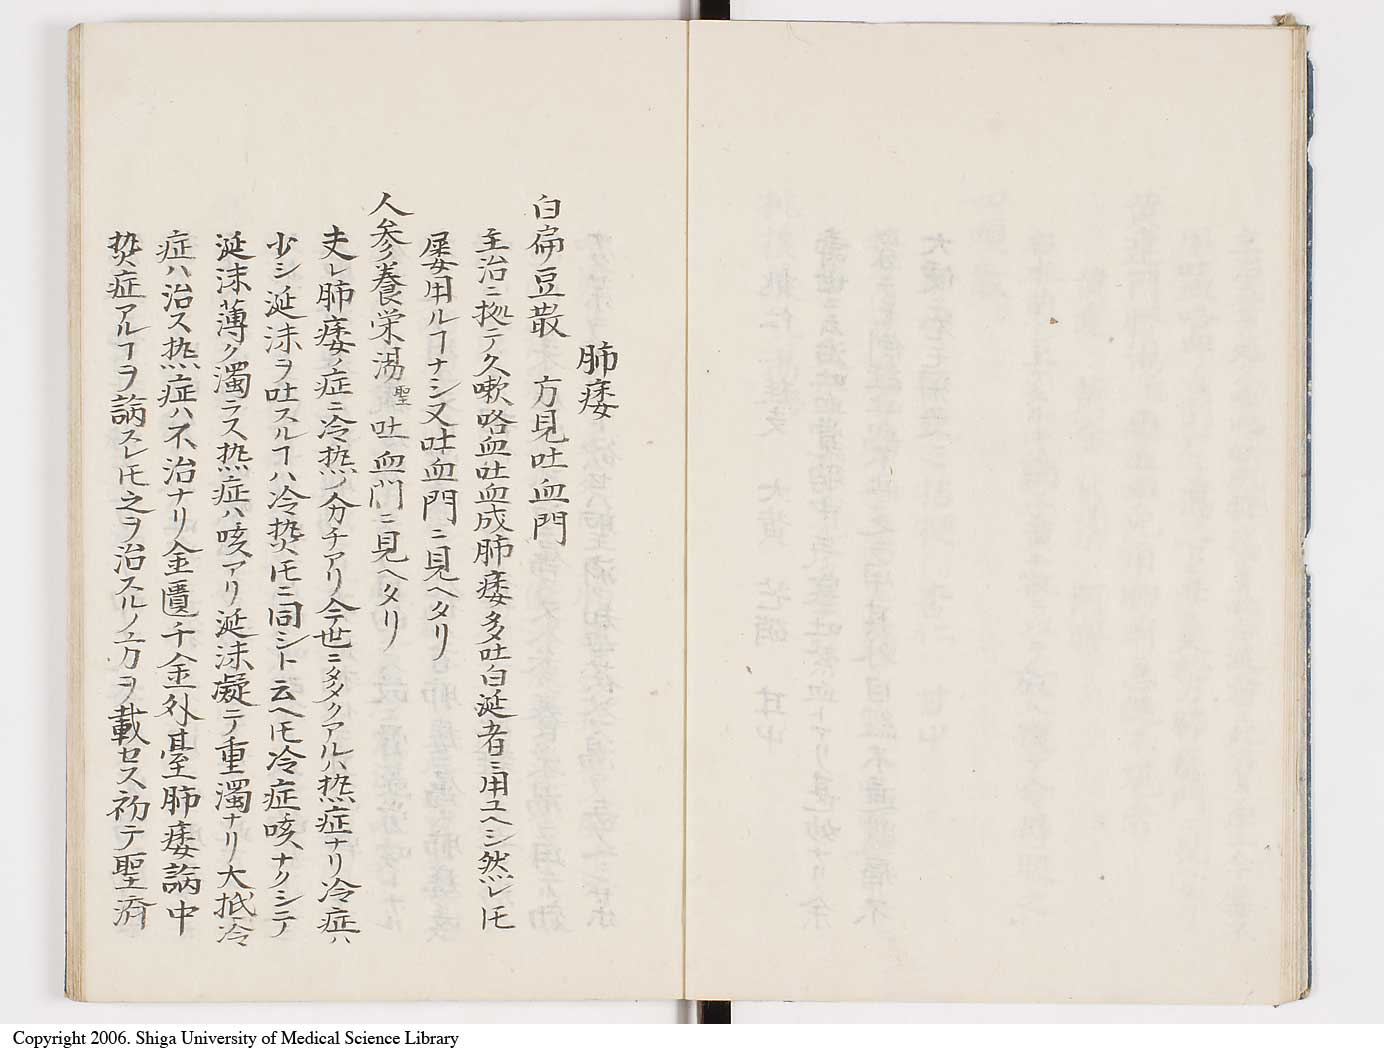 肺痿
白扁豆散　方見吐血門
主治ニ拠テ久嗽咯血吐血成肺痿多吐白涎者ニ用ユヘシ然レㇳモ
屡用ルヿナシ又吐血門ニ見ヘタリ
人参養栄湯 聖 吐血門ニ見ヘタリ
夫レ肺痿ノ症ニ冷热ノ分チアリ今世ニ多クアルハ热症ナリ冷症ハ
少シ涎沫ヲ吐スルヿハ冷热ㇳモニ同シト云ヘㇳモ冷症咳ナクシテ
涎沫薄ク濁ラス热症ハ咳アリ涎沫凝テ重濁ナリ大抵冷
症ハ治ス热症ハ不治ナリ金匱千金外臺肺痿論中
热症アルヿヲ論スレㇳモ之ヲ治スルノ方ヲ載セス初テ聖済
Copyright 2006. Shiga University of Medical Science Library